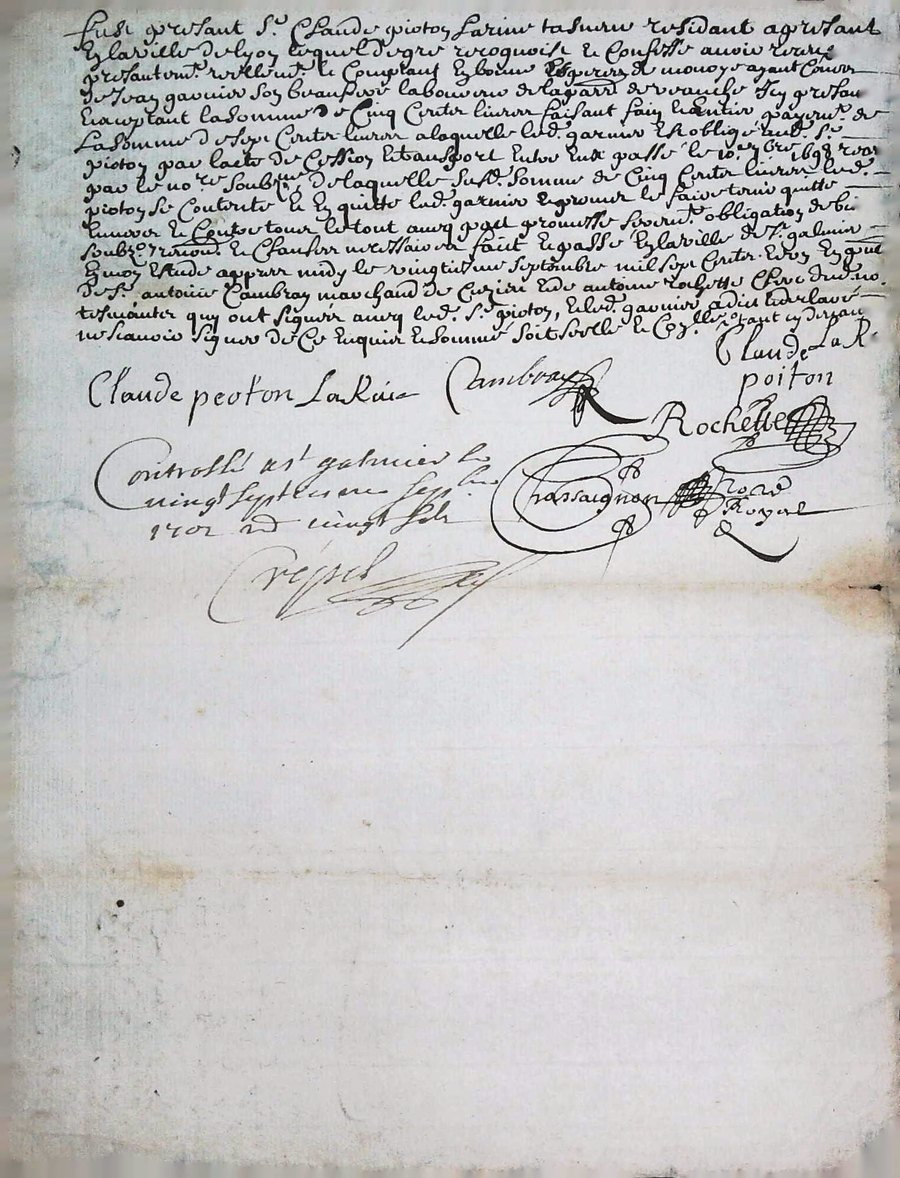 Fust presant Sr. Claude pioton Larive tasneur residant apresant
En laville de lyon lequel de gre recognoist Et Confesse avoir receu
presantemt. reellemt. Et Comptant En bonne Especes de monoye ayant Cours
de Jean garnier son beaufrere laboureur de lagard de veauche Icy presan
Et acceptant la Somme de Cinq Centz livres faisant fain Et Entier payemt. de
La Somme de sept Centz livres a laquelle led. garnier Est obligé aud. Sr.
pioton par lacte de Cession Et transport Entre Eux passé le 10e. 1698 receu
par le nore. soubsne. de laquelle susd. Somme de Cinq Centz livres led.
pioton se Contente Et En quitte led. garnier Et promet le faire tenir quitte
Envers Et Contre tous le tout avecq pareil promesse sermt. obligation de bi
soubz. renond. Et Clauses necessaires faict Et passé En laville de St. galmier
En mon Estude appres midy le vingtiesme Septembre mil sept Centz Et
de Sr. antoine Cambray marchand de Et de antoine rochette Clerc dud.
tesmointz quy ont signez avecq led. Sr. pioton, Et led. garnier a dict Et declaré
ne scavoir signer de Ce Enquis Et sommé soit scelle
Claude La R.
poiton
Claude peoton La Rive Cambray
Rochette
Controllé a St galmier le
vingt septiesme Septbre
1701 Rd vingt sols
Chassaignon nore
Royal
Crépet